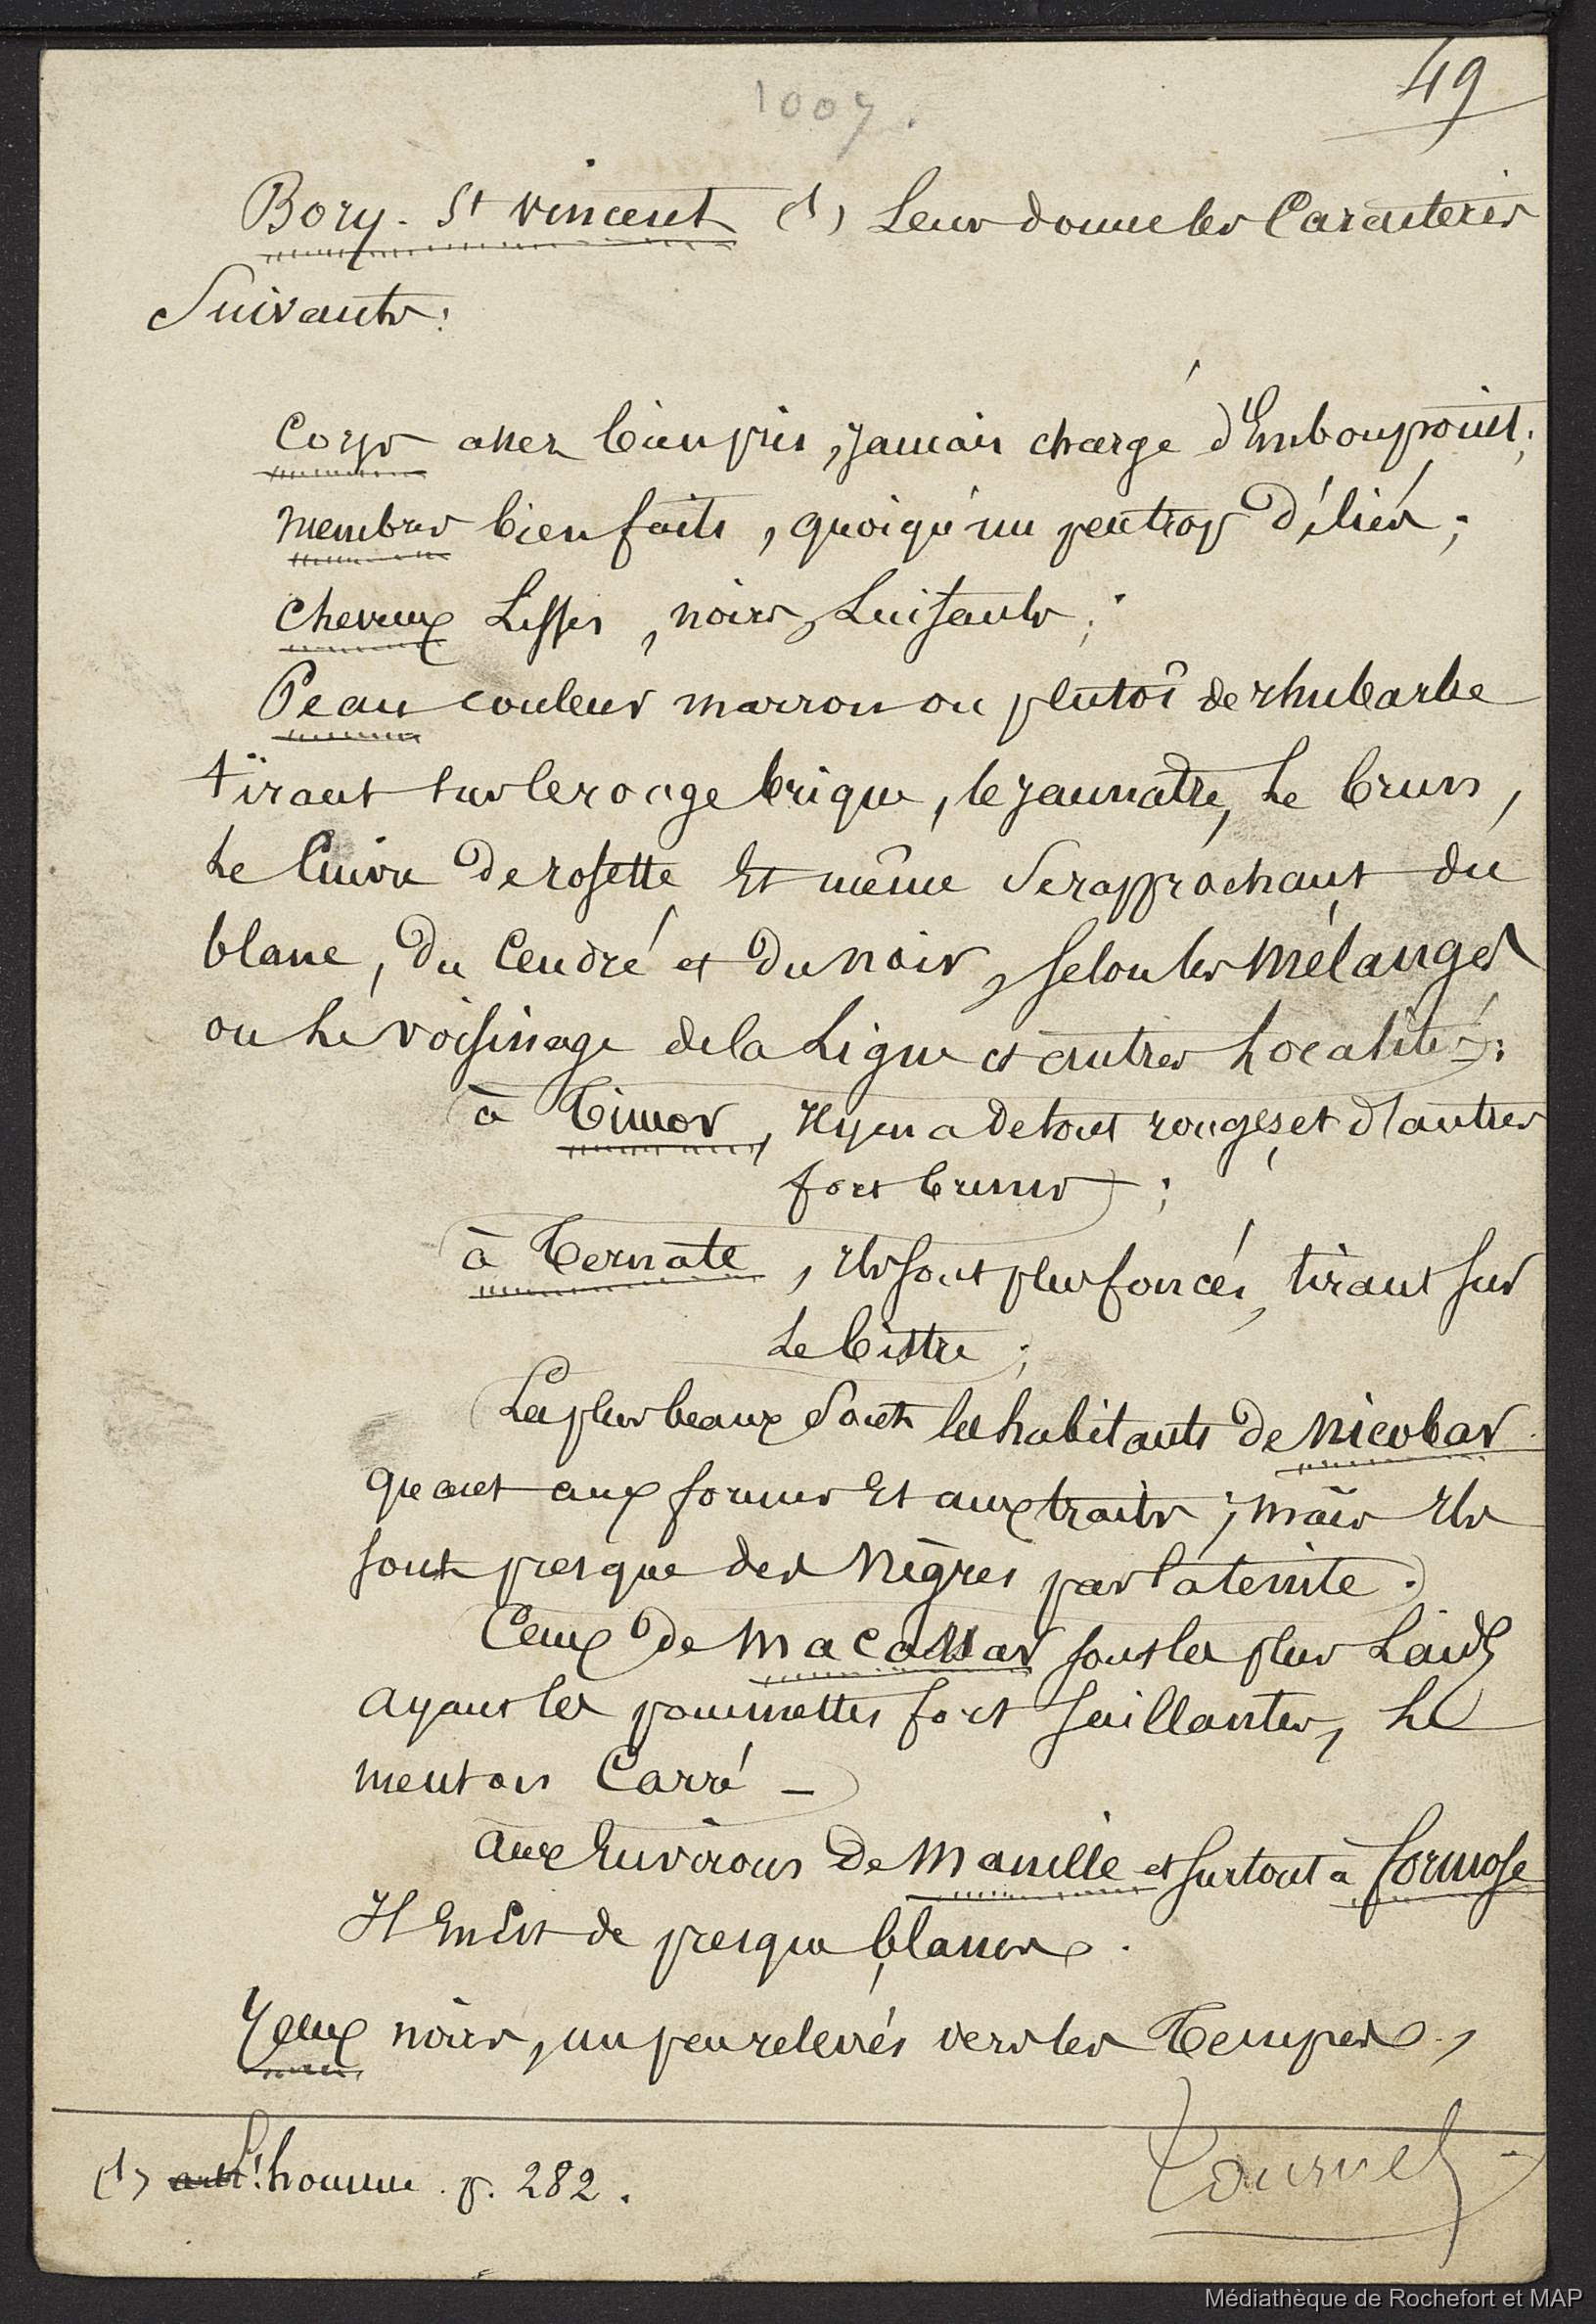 49
1007.
Bory. St Vincent (1) Leur donne les Caractères
Suivants:
Corps assez bien pris, jamais chargé d'Embonpoint;
membres bien faits, quoiqu'un peu trop déliés;
cheveux Lisses, noirs, Luisants;
Peau couleur marron ou plutôt de rhubarbe
tirant sur le rouge brique, le jaunâtre, Le brun,
Le Cuivre de rosette Et même Se rapprochant du
blanc, du Cendré et du noir, selon les mélanges
ou Le voisinage de la Ligne et autres Localités:
à Timor, Il y en a de tout rouges, et d'autres
fort bruns;
à Ternate, Ils sont plus foncés, tirant sur
Le bistre;
Les plus beaux Sont les habitants de Nicobar
quant aux formes Et aux traits; mais Ils
sont presque des Nègres par la teinte.
Ceux de Macassar sont les plus Laids
ayant les pommettes fort saillantes, Le
menton Carré –
aux Environs de Manille et surtout à formose
Il En Est de presque blancs.
Yeux noirs, un peu relevés vers les Tempes,
(1) L'homme. p. 282.
Tournez
Médiathèque de Rochefort et MAP